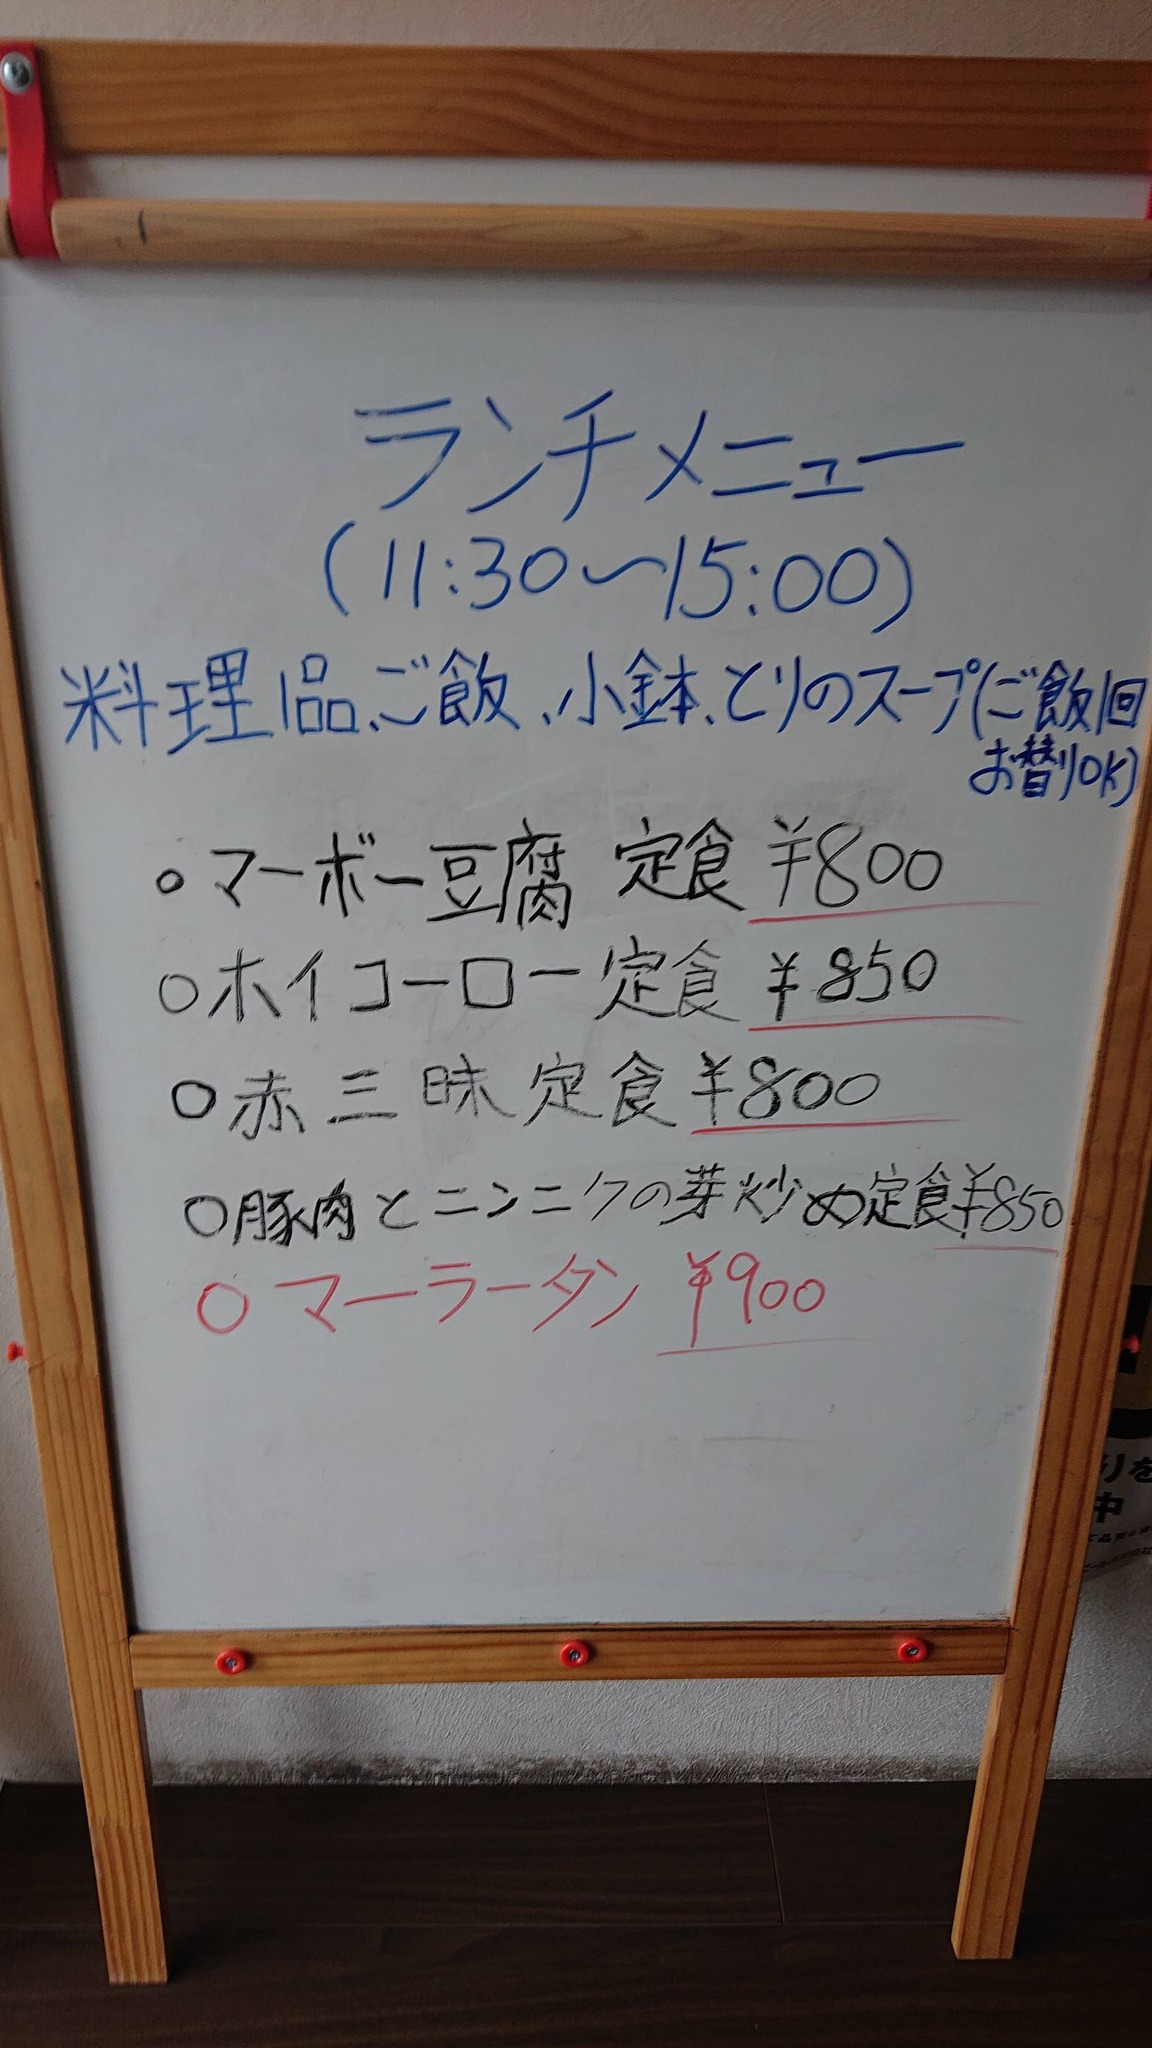 ランチメニュー
(11:30〜15:00)
料理1品、ご飯、小鉢、とりのスープ(ご飯1回
お替りOK)
○マーボー豆腐 定食 ¥800
○ホイコーロー定食 ¥850
○赤三昧定食¥800
○豚肉とニンニクの芽炒め定食¥850
○マーラータン ¥900
りを
中